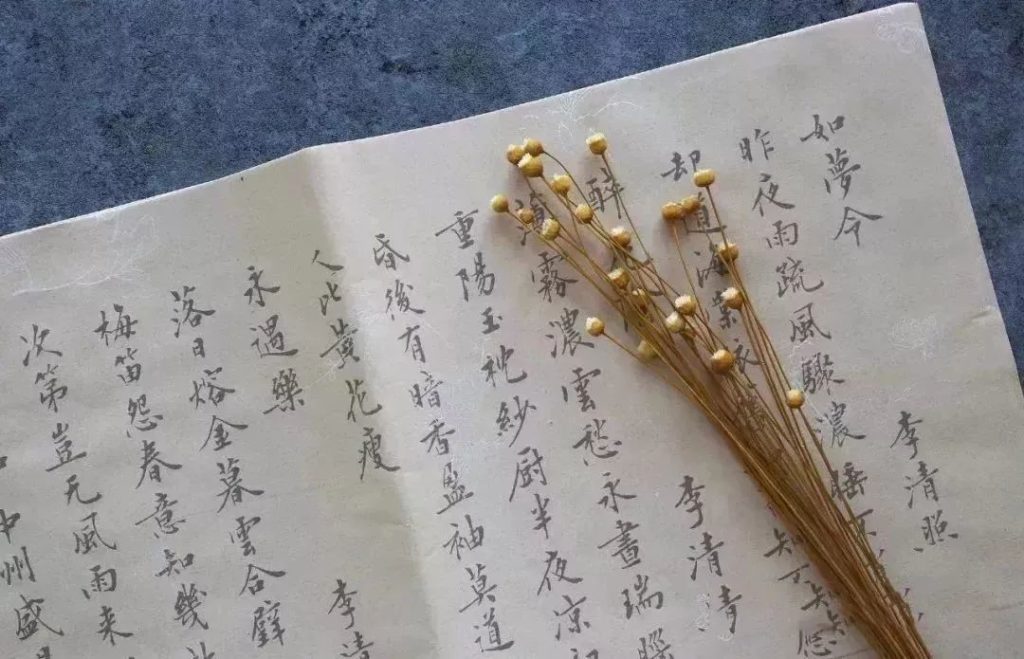 如夢令 李清照
昨夜雨疏風驟濃睡不
却道海 依 知 知
醉 李清清
霧濃雲愁永晝瑞腦
重陽玉枕紗厨半夜凉初
昏後有暗香盈袖莫道
人比黃花瘦
永遇樂 李清
落日熔金暮雲合璧
梅笛怨春意知幾
次第豈无風雨来
中州盛